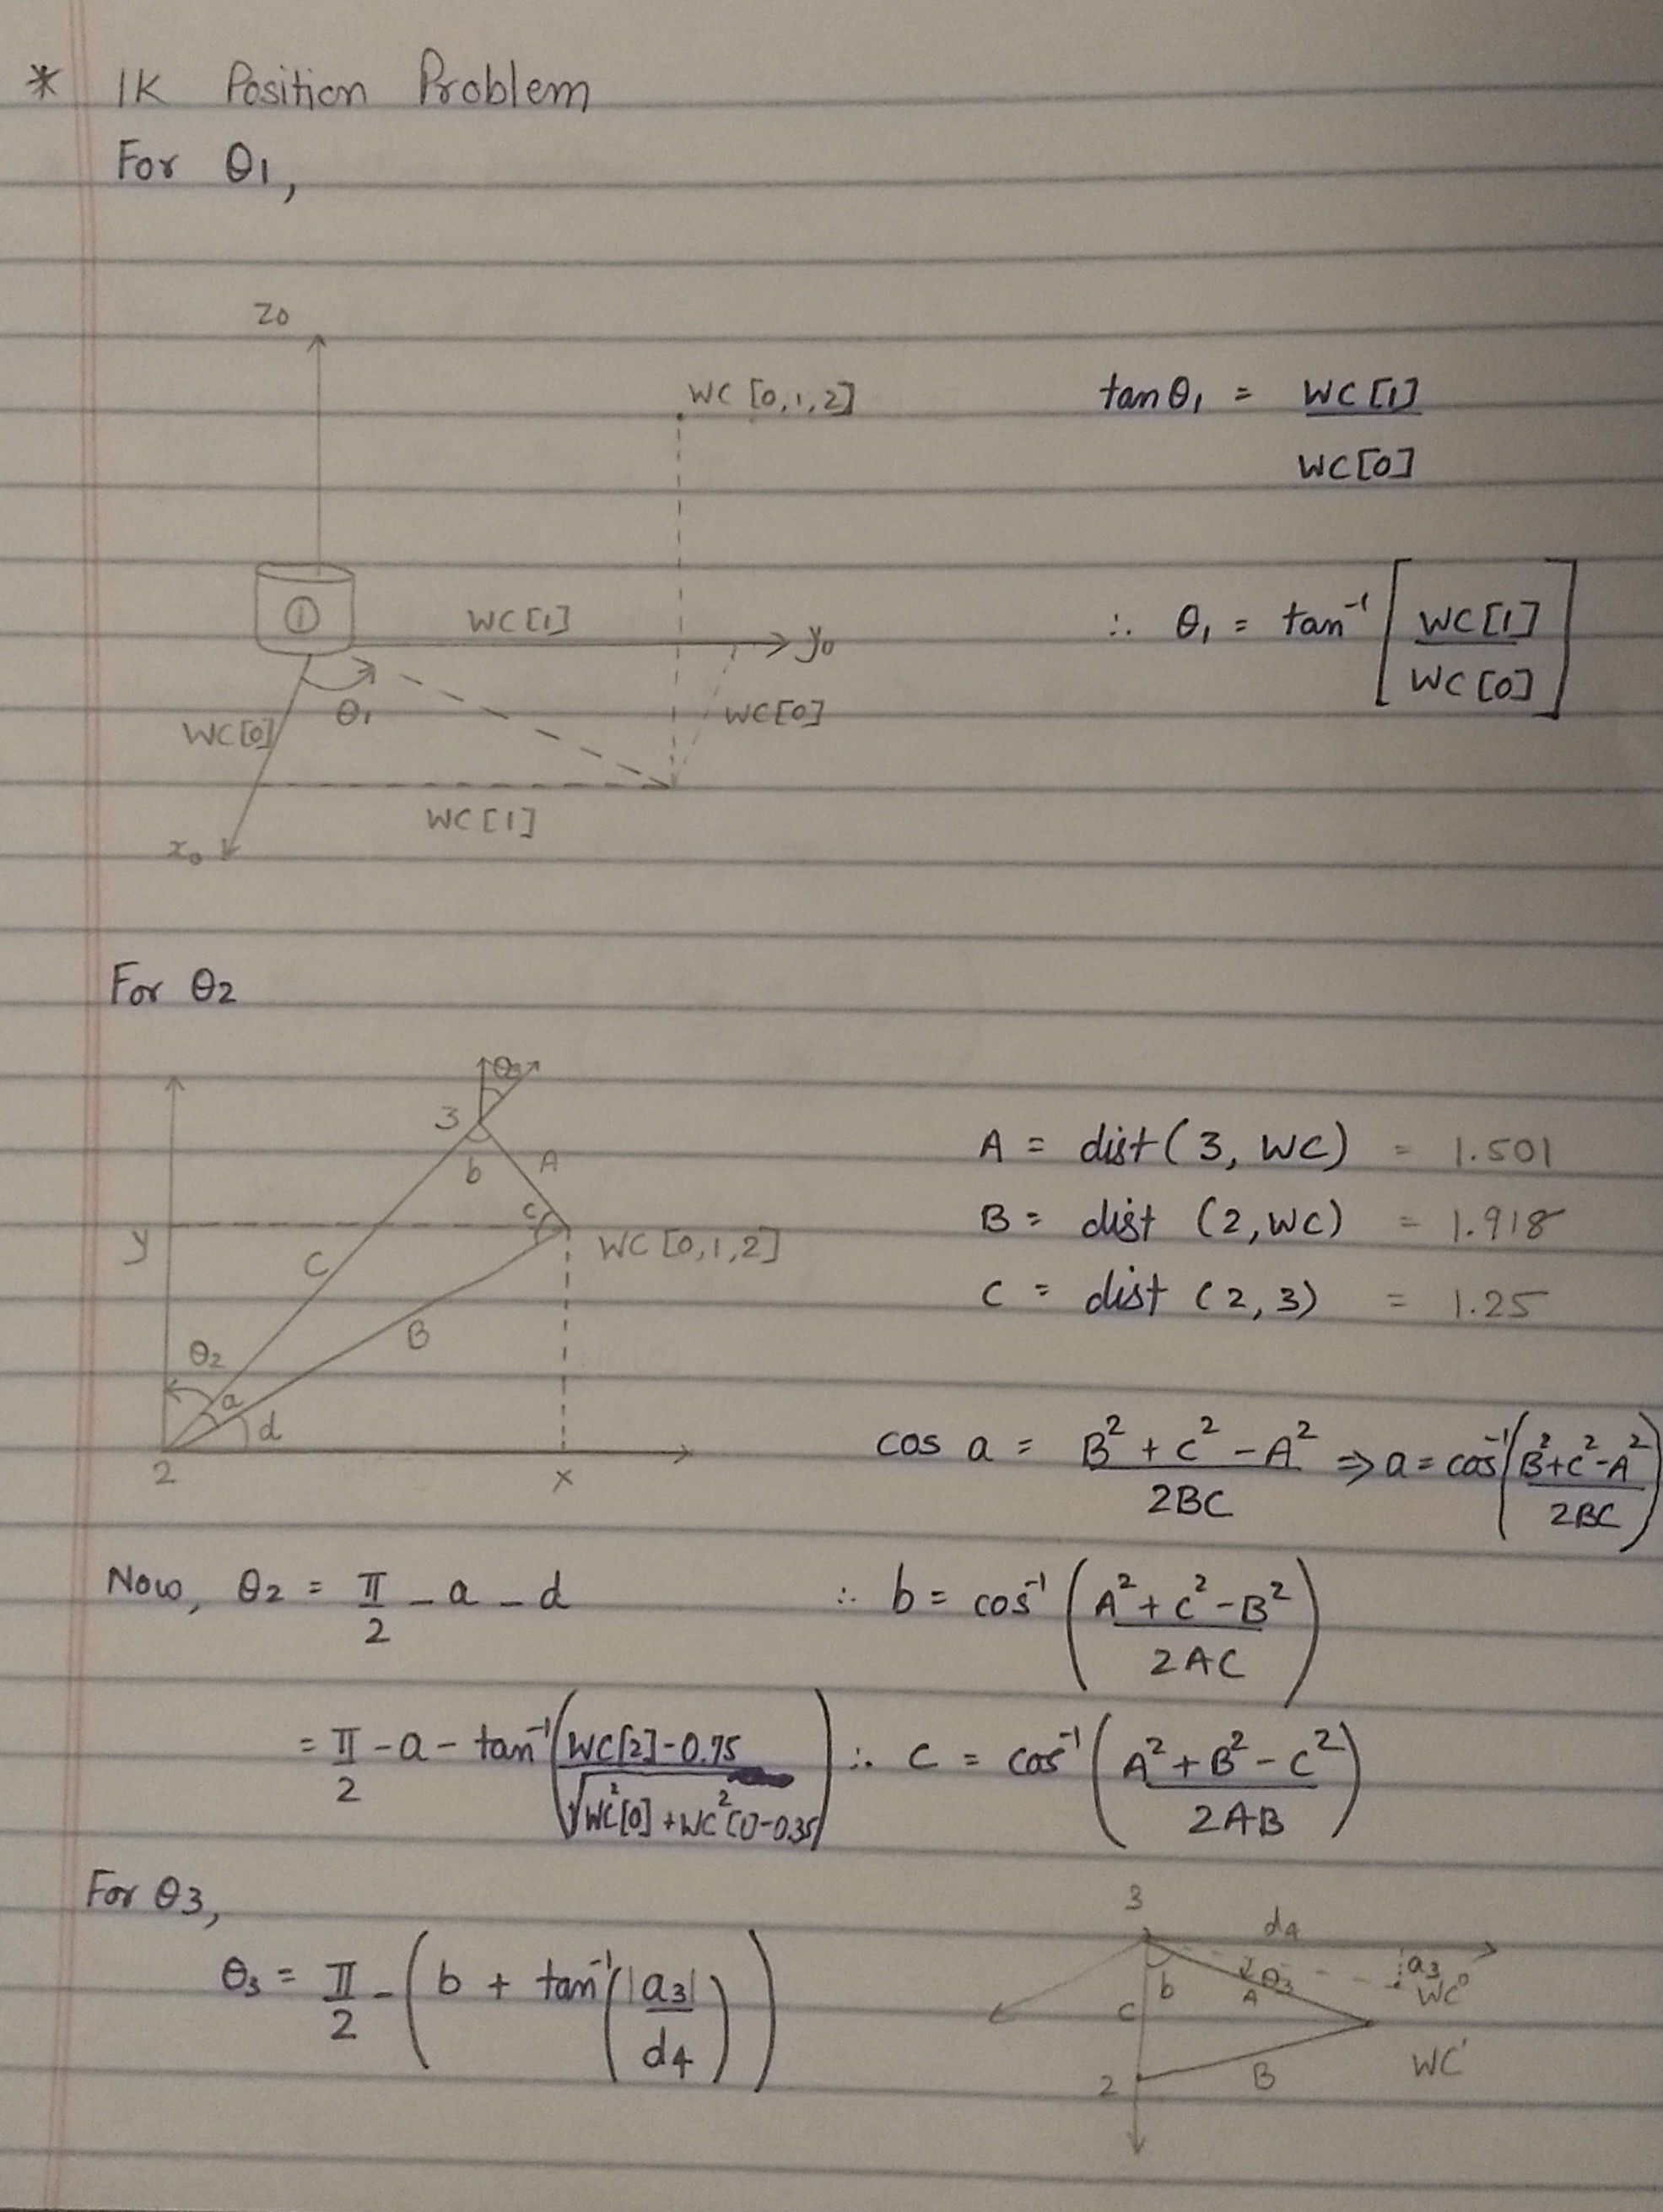 * IK Position Problem
For θ1,
z0
WC [0,1,2]
tanθ1 = WC[1]
WC[0]
①
WC[1]
y0
∴ θ1 = tan⁻¹ [ WC[1]
WC[0] ]
θ1
WC[0]
WC[0]
WC[1]
x0
For θ2
3
b
A
c
y
C
WC [0,1,2]
B
θ2
a
d
2
x
A = dist(3, WC) = 1.501
B = dist (2,WC) = 1.918
C = dist (2,3) = 1.25
cos a = B² + C² - A² ⇒ a = cos⁻¹ ( B²+C²-A²
2BC
2BC )
Now, θ2 = π - a - d
2
∴ b = cos⁻¹ ( A² + C² - B²
2AC )
= π - a - tan⁻¹ ( WC[2]-0.75
2
√WC²[0] + WC²[1]-0.35 )
∴ c = cos⁻¹ ( A² + B² - C²
2AB )
For θ3,
θ3 = π - ( b + tan⁻¹ ( |a3|
2
d4 ) )
3
d4
a3
WC⁰
θ3
A
b
C
WC'
2
B